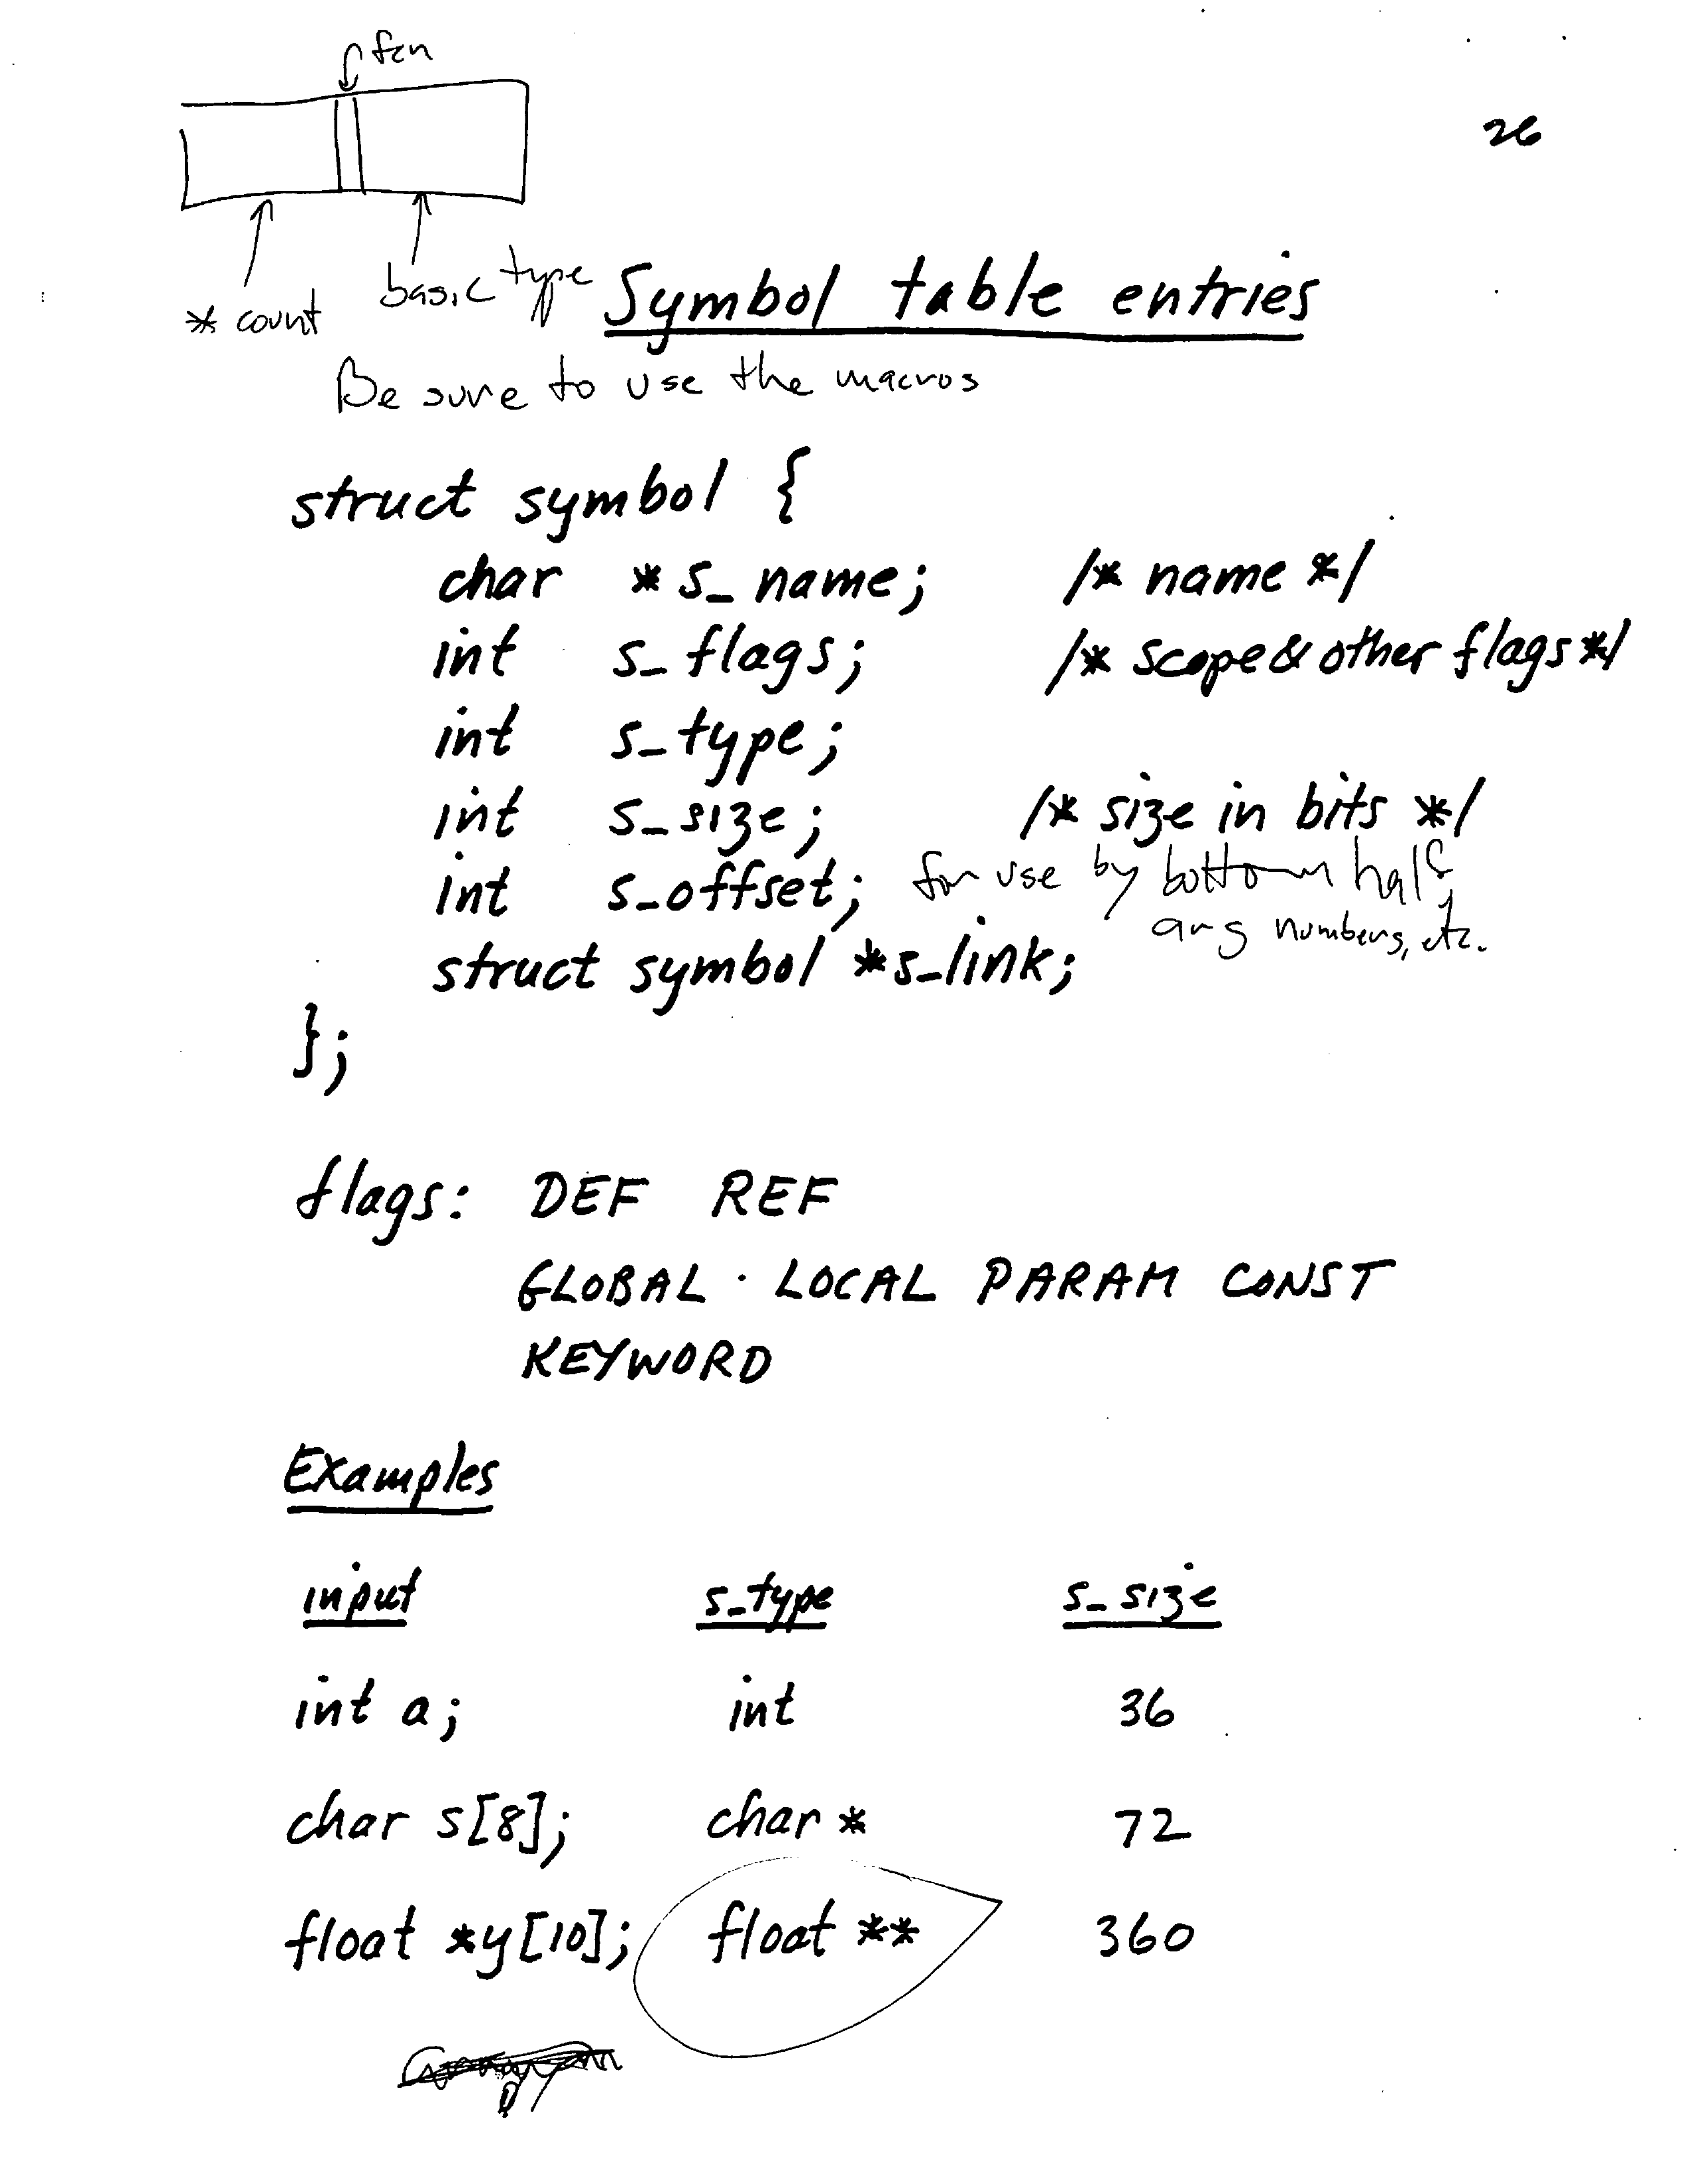 fcn
26
* count
basic type
Symbol table entries
Be sure to use the macros
struct symbol {
char *s_name; /* name */
int s_flags; /* scope & other flags */
int s_type;
int s_size; /* size in bits */
int s_offset; for use by bottom half,
arg numbers, etc.
struct symbol *s_link;
};
flags: DEF REF
GLOBAL · LOCAL PARAM CONST
KEYWORD
Examples
input s_type s_size
int a; int 36
char s[8]; char * 72
float *y[10]; float ** 360